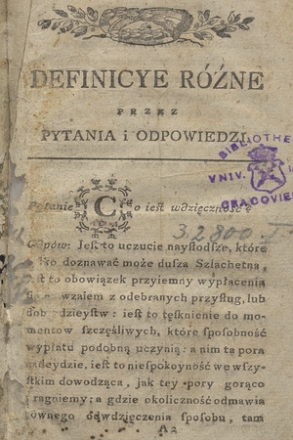 DEFINICYE RÓŻNE
PRZEZ
PYTANIA i ODPOWIEDZI.
BIBLIOTHE
VNIV.
CRACOVIE
Pytanie Co iest wdzięczność?
32800.I
Odpow: Jest to uczucie naysłodsze, które
doznawać może dusza Szlachetna,
est to obowiązek przyiemny wypłacenia
wzalem z odebranych przysług, lub
dob dzieystw: iest to tęsknienie do mo-
mentow szczęśliwych, które sposobność
wypłatu podobną uczynią: a nim ta pora
nadeydzie, iest to niespokoyność we wszy-
stkim dowodząca, jak tey pory gorąco
pragniemy: a gdzie okoliczność odmawia
równego odwdzięczenia sposobu, tam
A2